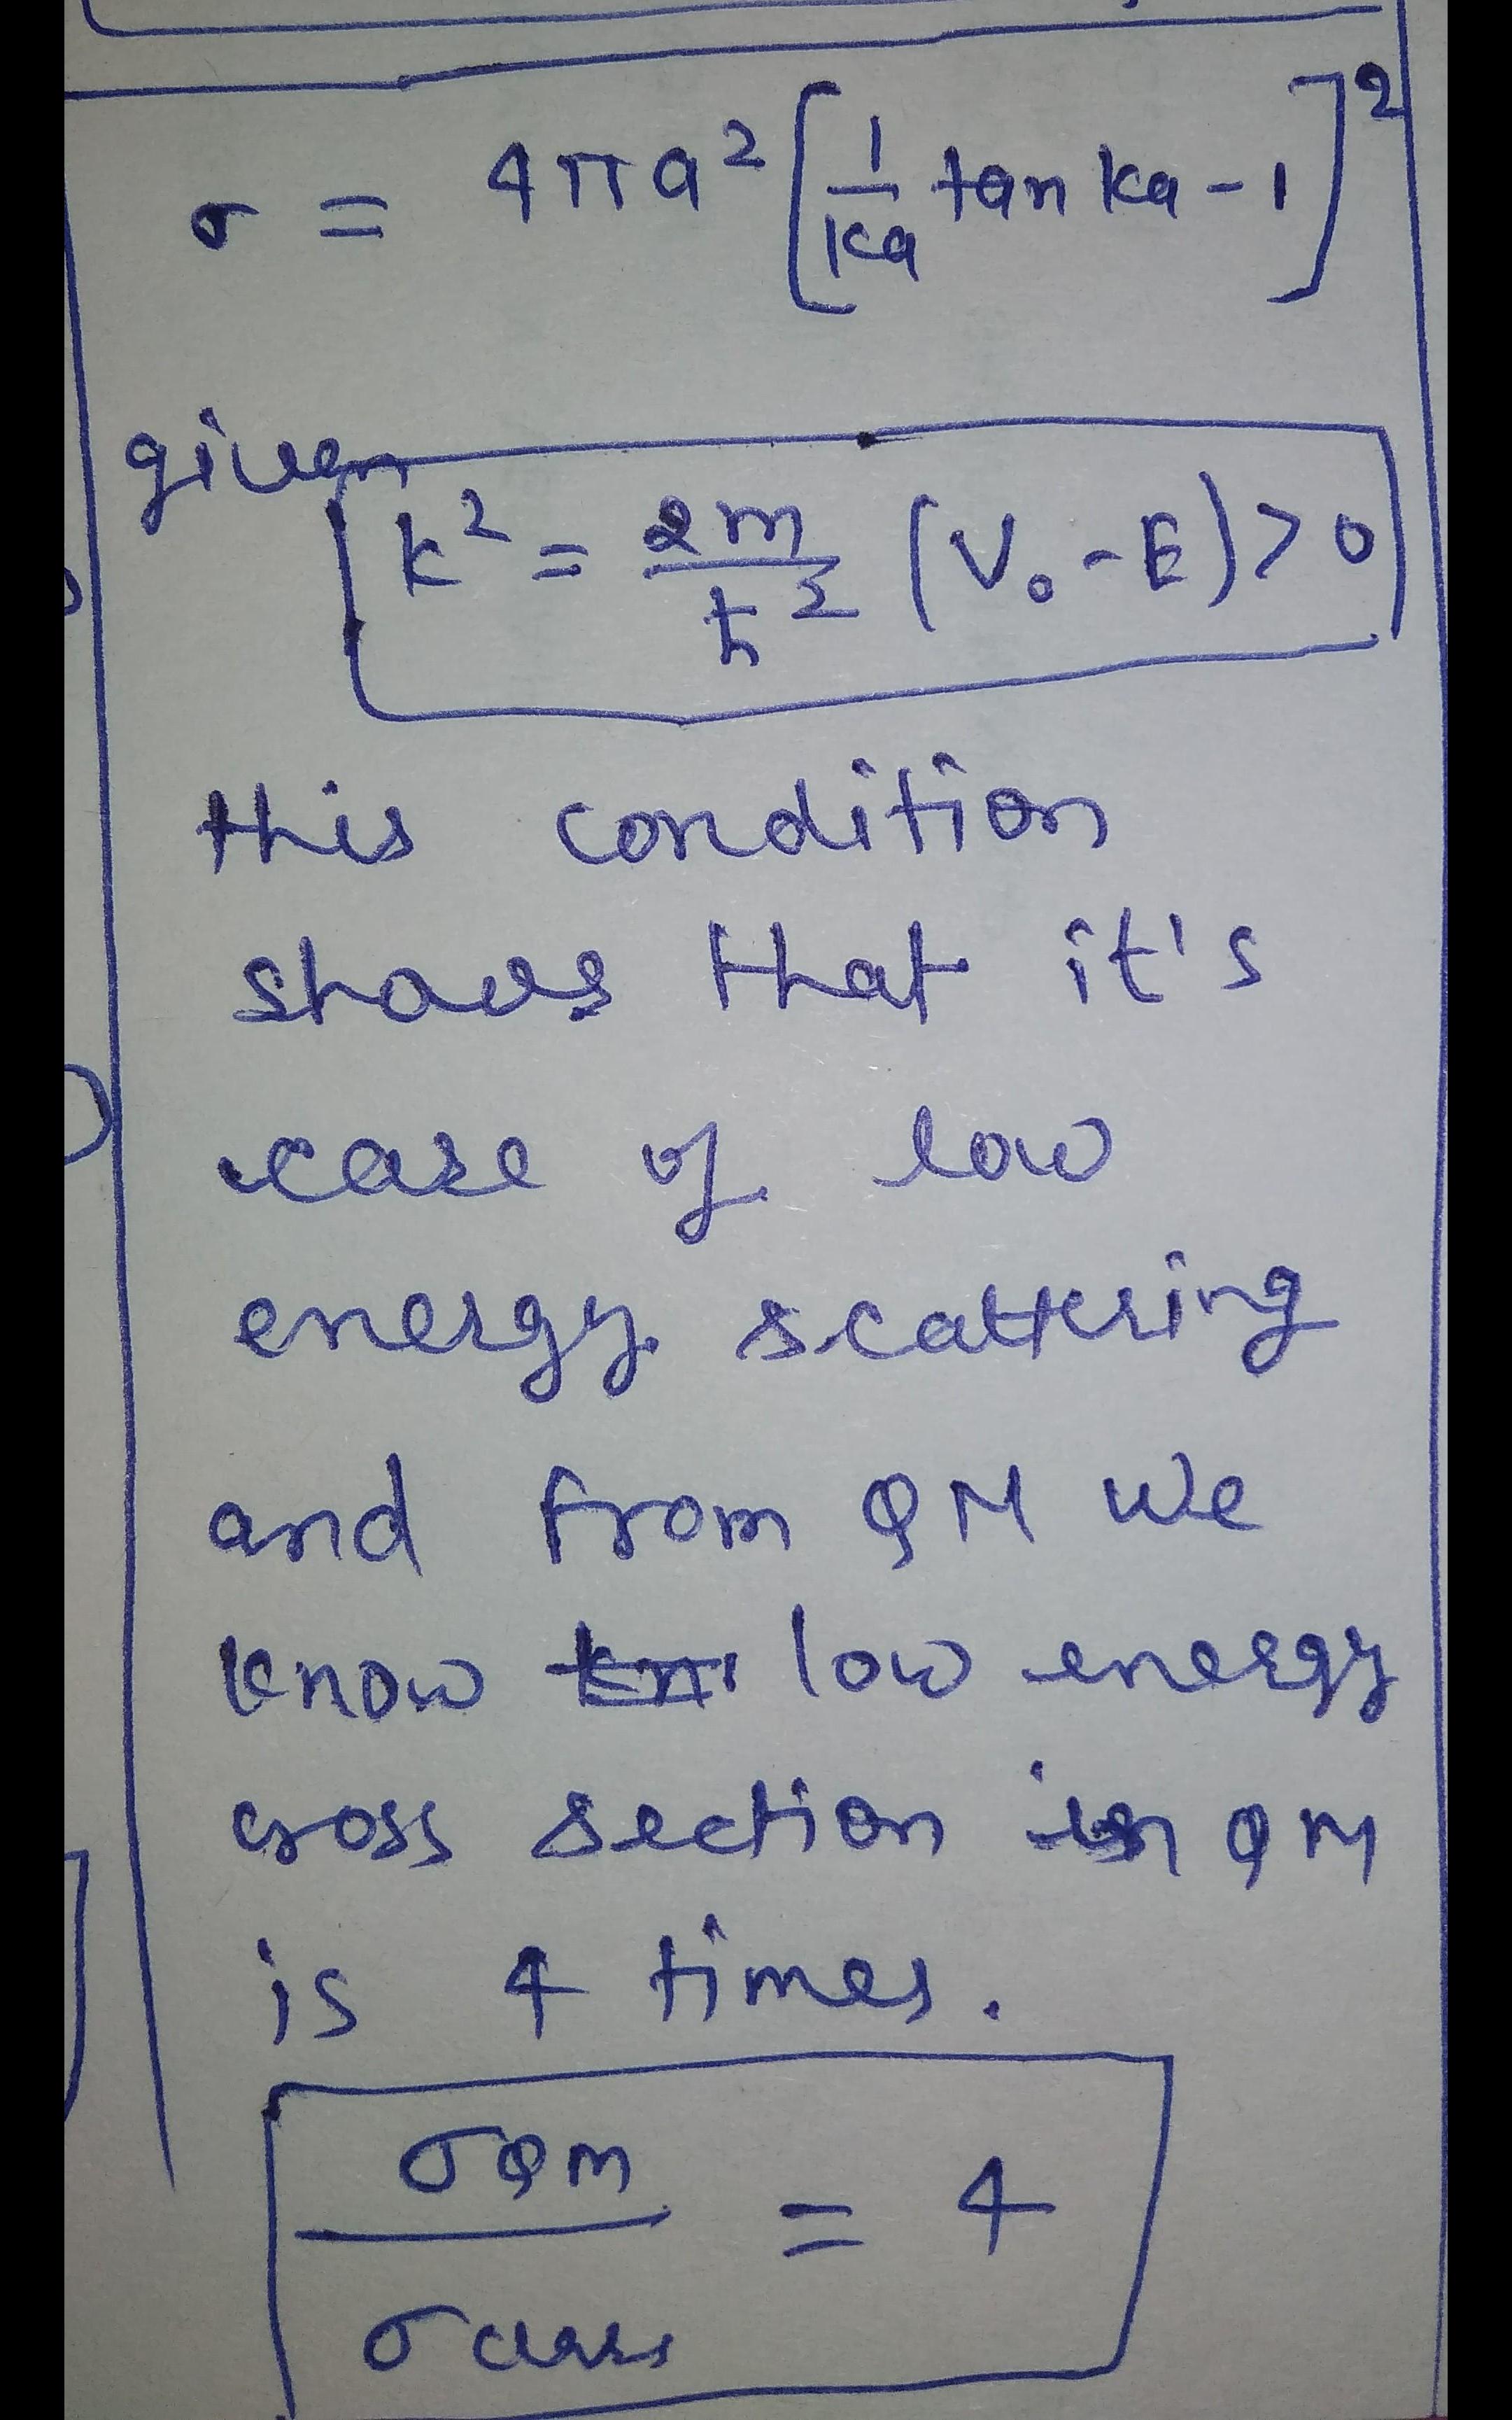 σ = 4πa² [1/ka tan ka - 1]²
given
k² = 2m/ħ² (V₀ - E) > 0
this condition
shows that it's
case of low
energy scattering
and from QM we
know low energy
cross section in QM
is 4 times.
σQM / σclass = 4